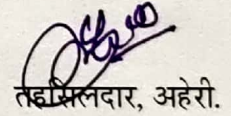 तहसिलदार, अहेरी.